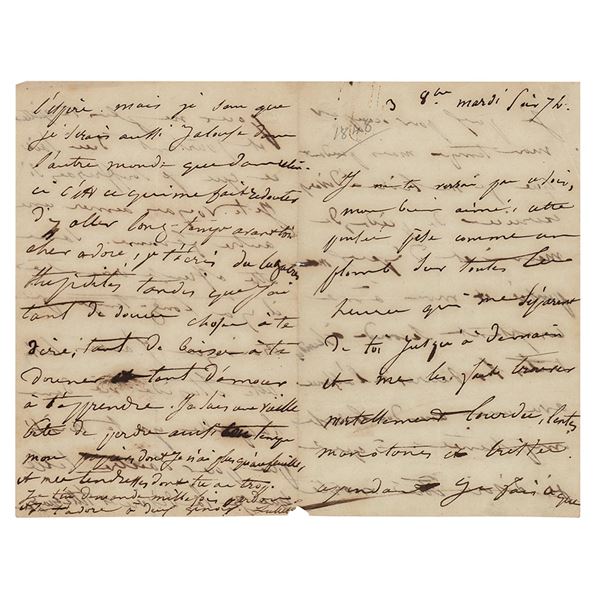 3 8bre mardi soir 7h.
1848
Je ne te verrai pas ce soir,
mon bien aimé, cette
pensée pèse comme un
plomb sur toutes les
heures qui me séparent
de toi jusqu'à demain
et me les fait trouver
mortellement lourdes, lentes
monotones et tristes.
cependant
l'espère. mais je sens que
je serais aussi jalouse dans
l'autre monde que dans celui-
ci c'est ce qui me fait redouter
d'y aller long-temps avant toi
cher adoré, je t'écris
stupidités tandis que j'ai
tant de douces choses à te
dire, tant de baisers à te
donner et tant d'amour
à t'apprendre. Je suis une vieille
bête de perdre ainsi temps
mon dont je n'ai plus qu'une feuille,
et mes tendresses dont tu as trop.
Je te demande mille fois pardon
et t'adore à deux genoux. Juliette